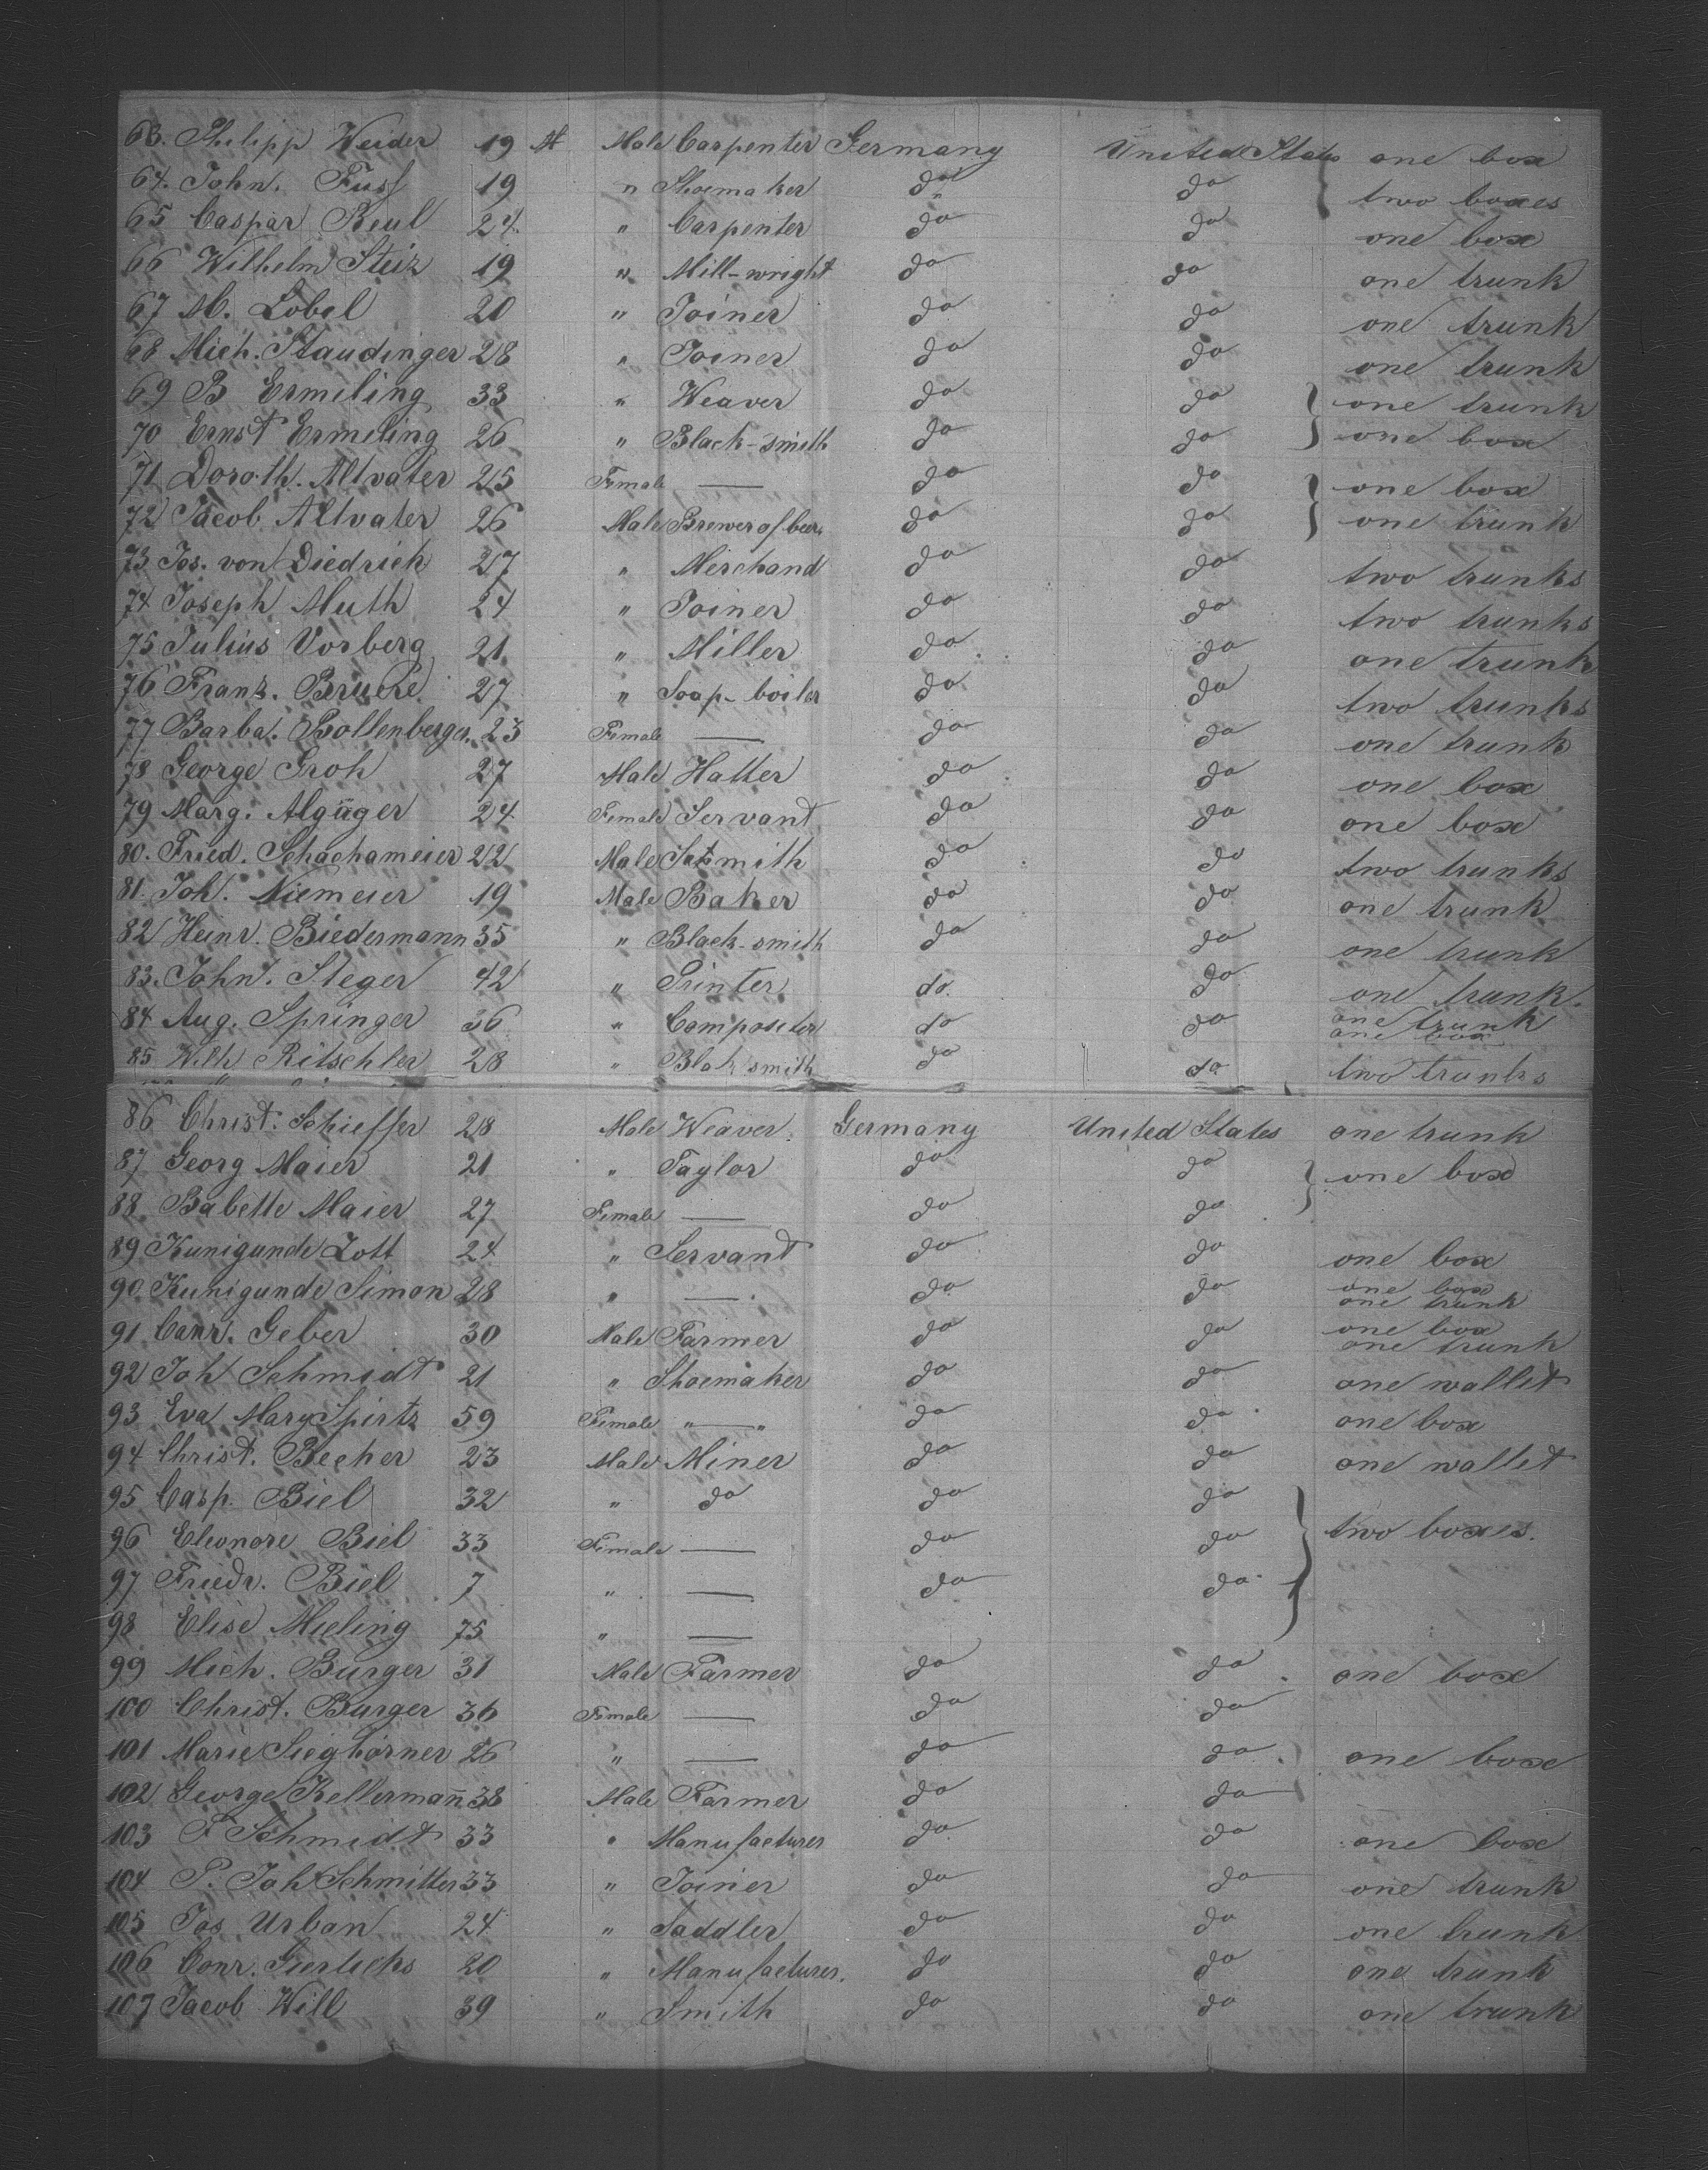 63. Philipp Weider 19 M Male Carpenter Germany United States one box
64. John. Fuss 19 " Shoemaker do do two boxes
65 Caspar Beul 24 " Carpenter do do one box
66 Wilhelm Steiz 19 " Mill-wright do do one trunk
67 M. Lobel 20 " Joiner do do one trunk
68 Mich. Staudinger 28 " Joiner do do one trunk
69 B Ermeling 33 " Weaver do do one trunk
70 Ernst Ermeling 26 " Black-smith do do one box
71 Doroth. Altvater 25 Female — do do one box
72 Jacob Altvater 26 Male Brewer of beer do do one trunk
73 Jos. von Diedrich 27 " Merchand do do two trunks
74 Joseph Muth 24 " Joiner do do two trunks
75 Julius Vorberg 21 " Miller do do one trunk
76 Frank. Bruere 27 " Soap-boiler do do two trunks
77 Barba. Bollenberger. 23 Female — do do one trunk
78 George Groh 27 Male Hatter do do one box
79 Marg. Algäger 24 Female Servant do do one box
80. Fried. Schachameier 22 Male do do two trunks
81. Joh. Niemeier 19 Male Baker do do one trunk
82 Heinr. Biedermann 35 " Black-smith do do one trunk
83. John. Steger 42 " Printer do. do one trunk.
84 Aug. Springer 36 " Compositer do do one trunk one box
85 Wilh Ritschler 28 " Blaksmith do do two trunks
86 Christ. Schieffer 28 Male Weaver. Germany United States one trunk
87 Georg Maier 21 " Taylor do do one box
88 Babette Maier 27 Female — do do
89 Kunigunde Lott 24 " Servant do do one box
90 Kunigunde Simon 28 " — do do one box one trunk
91 Conr. Geber 30 Male Farmer do do one box one trunk
92 Joh Schmidt 21 " Shoemaker do do one wallet
93 Eva Mary Spirtz 59 Female "—" do do one box
94 Christ. Becher 23 Male Miner do do one wallet
95 Casp. Biel 32 " do do do
96 Eleonore Biel 33 Female — do do two boxes.
97 Friedr. Biel 7 " — do do
98 Elise Mieling 75 " —
99 Mich. Burger 31 Male Farmer do do one box
100 Christ. Burger 36 Female — do do
101 Marie Sieghörner 26 " — do do one box
102 George Kellermañ 38 Male Farmer do do
103 F Schmidt 33 " Manufacturer do do one box
104 P. Joh Schmitter 33 " Joiner do do one trunk
105 Jos Urban 24 " Saddler do do one trunk
106 Conr. Gierlichs 20 " Manufacturer. do do one trunk
107 Jacob Will 39 " Smith do do one trunk